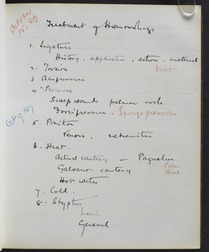 October
15. 89
Treatment of Haemorrhage
1. Ligature
History, application, action, material
2. Torsion
Knot
3. Acupressure
4. Pressure
Scalp wounds palmar arch
Forcipressure. Sponge pressure
Oct 9 '87
5. Position
Venous, extremities
6. Heat.
Actual cautery — Paquelin
Galvano cautery
Hot water
7. Cold.
8. Styptics
Local
General